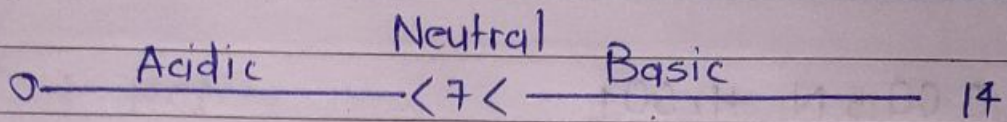 Neutral
Acidic Basic
0 < 7 < 14